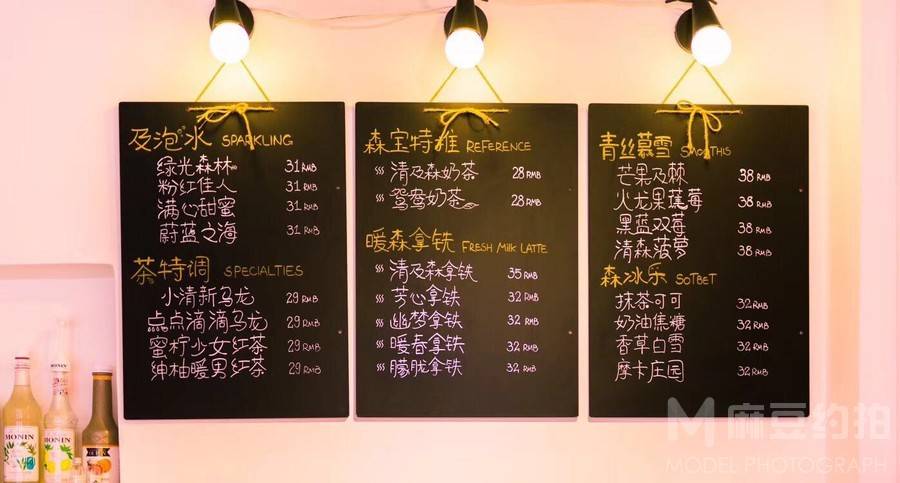 及泡冰 SPARKLING
绿光森林 31 RMB
粉红佳人 31 RMB
满心甜蜜 31 RMB
蔚蓝之海 31 RMB
茶特调 SPECIALTIES
小清新乌龙 29 RMB
点点滴滴乌龙 29 RMB
蜜柠少女红茶 29 RMB
绅柚暖男红茶 29 RMB
森宝特推 REFERENCE
清及森奶茶 28 RMB
鸳鸯奶茶 28 RMB
暖森拿铁 FRESH Milk LATTE
清及森拿铁 35 RMB
芳心拿铁 32 RMB
幽梦拿铁 32 RMB
暖春拿铁 32 RMB
朦胧拿铁 32 RMB
青丝慕雪 SMOOTHIS
芒果及棘 38 RMB
火龙果蓬莓 38 RMB
黑蓝双莓 38 RMB
清森菠萝 38 RMB
森冰乐 SOTBET
抹茶可可 32 RMB
奶油焦糖 32 RMB
香草白雪 32 RMB
摩卡庄园 32 RMB
MONIN
MONIN
MONIN
M 麻豆约拍
MODEL PHOTOGRAPH